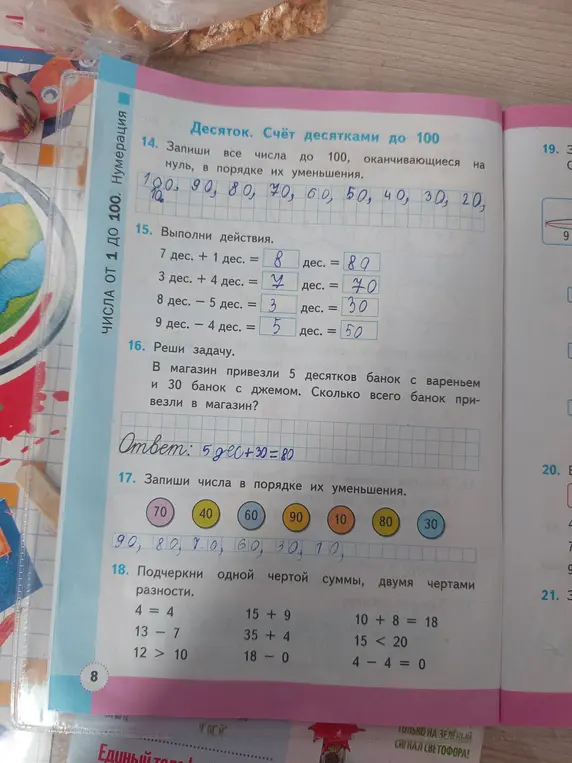 Десяток. Счёт десятками до 100
14. Запиши все числа до 100, оканчивающиеся на
нуль, в порядке их уменьшения.
100, 90, 80, 70, 60, 50, 40, 30, 20,
10.
15. Выполни действия.
7 дес. + 1 дес. = 8 дес. = 80
3 дес. + 4 дес. = 7 дес. = 70
8 дес. − 5 дес. = 3 дес. = 30
9 дес. − 4 дес. = 5 дес. = 50
16. Реши задачу.
В магазин привезли 5 десятков банок с вареньем
и 30 банок с джемом. Сколько всего банок при-
везли в магазин?
Ответ: 5 дес+30=80
17. Запиши числа в порядке их уменьшения.
70 40 60 90 10 80 30
90, 80, 70, 60, 30, 10,
18. Подчеркни одной чертой суммы, двумя чертами
разности.
4 = 4 15 + 9 10 + 8 = 18
13 − 7 35 + 4 15 < 20
12 > 10 18 − 0 4 − 4 = 0
8
ЧИСЛА ОТ 1 ДО 100. Нумерация
19. З
9
20.
21. З
ТОЛЬКО НА ЗЕЛЁНЫЙ
СИГНАЛ СВЕТОФОРА!
Единый